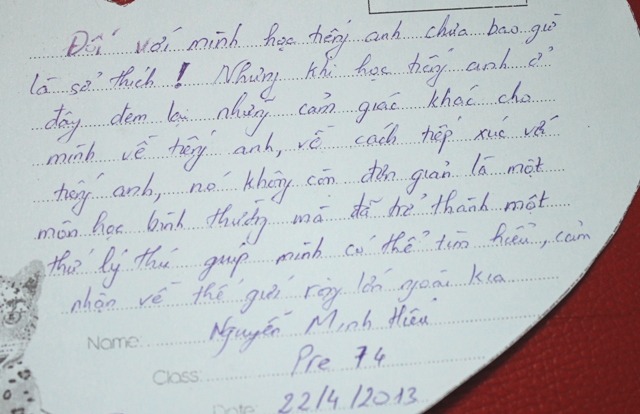 Đối với mình học tiếng anh chưa bao giờ
là sở thích! Nhưng khi học tiếng anh ở
đây đem lại những cảm giác khác cho
mình về tiếng anh, về cách tiếp xúc với
tiếng anh, nó không còn đơn giản là một
môn học bình thường mà đã trở thành một
thứ lý thú giúp mình có thể tìm hiểu, cảm
nhận về thế giới rộng lớn ngoài kia
Name: Nguyễn Minh Hiếu
Class: Pre 74
Date: 22/4/2013